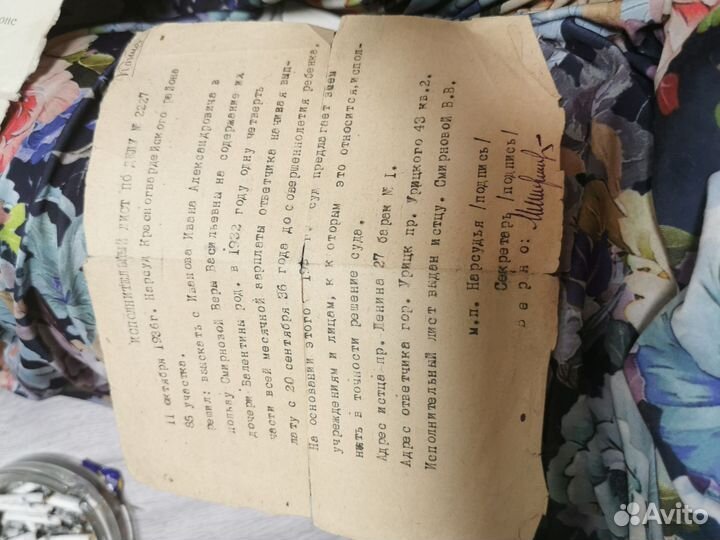 оне
/Копия/
ИСПОЛНИТЕЛЬНЫЙ ЛИСТ ПО ДЕЛУ № 2227
11 октября 1936г. Нарсуд Красногвардейского района
85 участка.
решил: взыскать с Иванова Ивана Александровича в
пользу Смирновой Веры Васильевны на содержание их
дочери Валентины род. в 1932 году одну четверть
части всей месячной зарплаты ответчика начиная вып-
лату с 20 сентября 36 года до совершеннолетия ребенка.
На основании этого, суд предлагает всем
учреждениям и лицам, к которым это относится, испол-
нять в точности решение суда.
Адрес истца-пр. Ленина 27 барак № I.
Адрес ответчика гор. Урицк пр. Урицкого 43 кв.2.
Исполнительный лист выдан истцу. Смирновой В.В.
м.п. Нарсудья /подпись/
Секретарь /подпись/
верно:
Avito